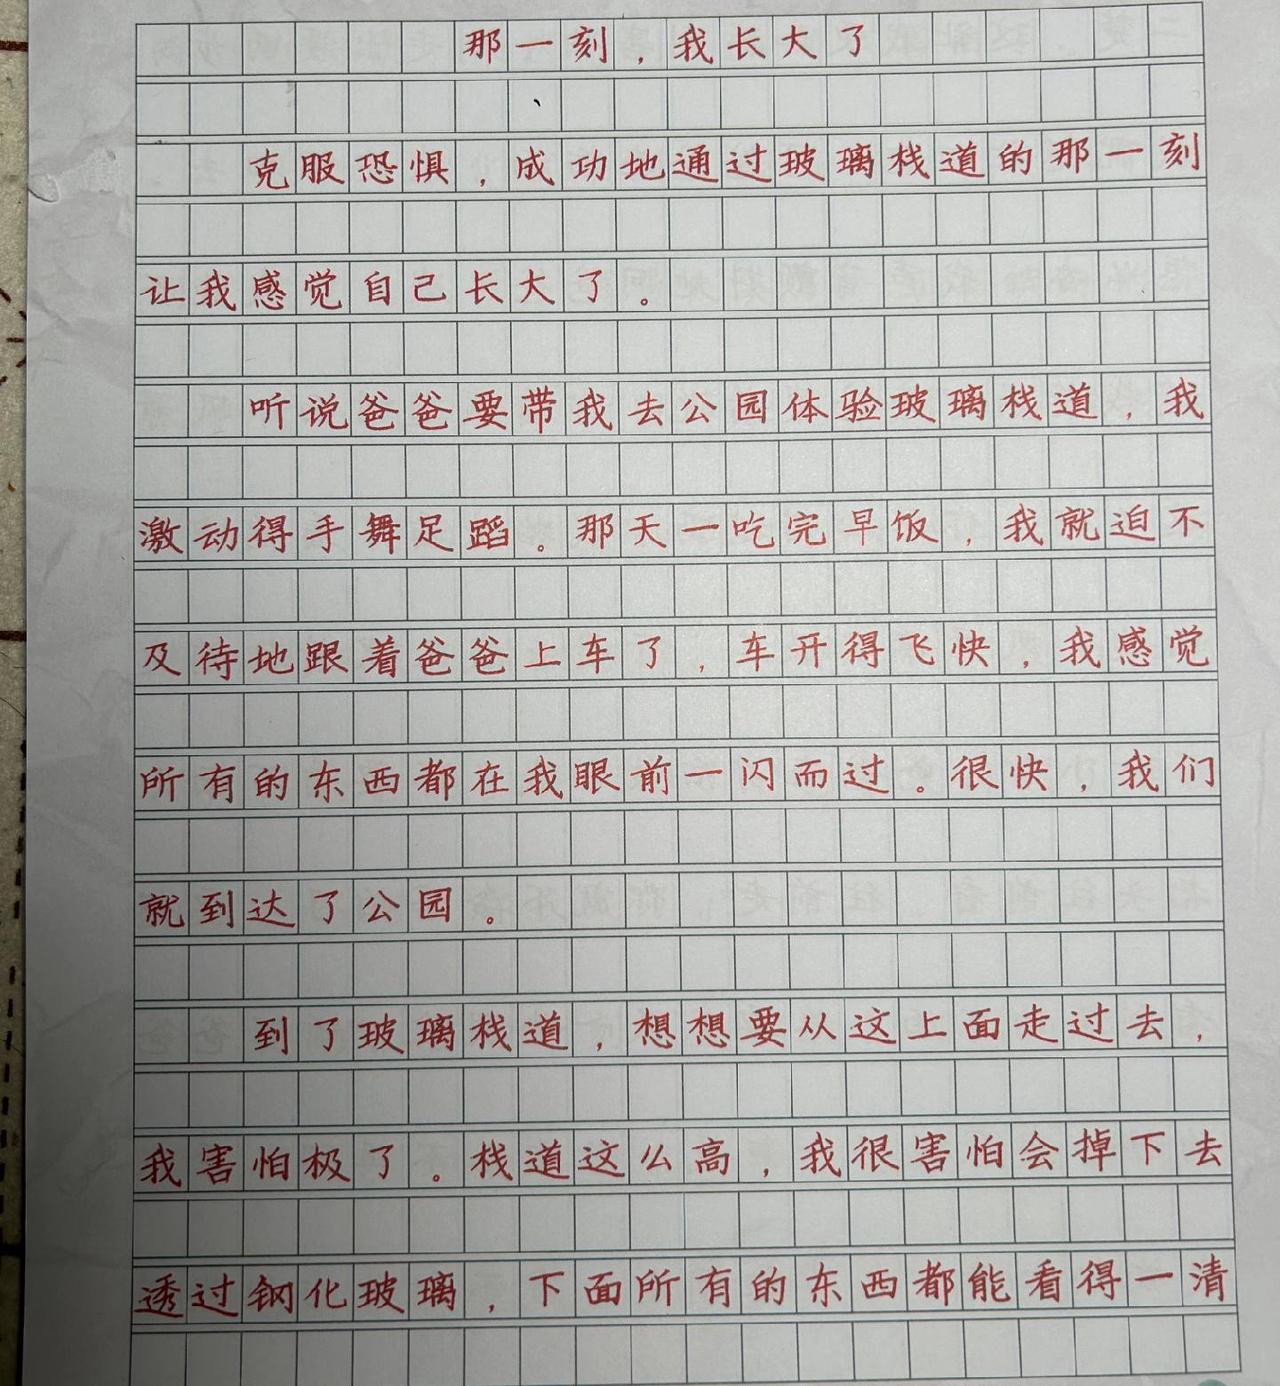 那一刻，我长大了
克服恐惧，成功地通过玻璃栈道的那一刻
让我感觉自己长大了。
听说爸爸要带我去公园体验玻璃栈道，我
激动得手舞足蹈。那天一吃完早饭，我就迫不
及待地跟着爸爸上车了，车开得飞快，我感觉
所有的东西都在我眼前一闪而过。很快，我们
就到达了公园。
到了玻璃栈道，想想要从这上面走过去，
我害怕极了。栈道这么高，我很害怕会掉下去
透过钢化玻璃，下面所有的东西都能看得一清